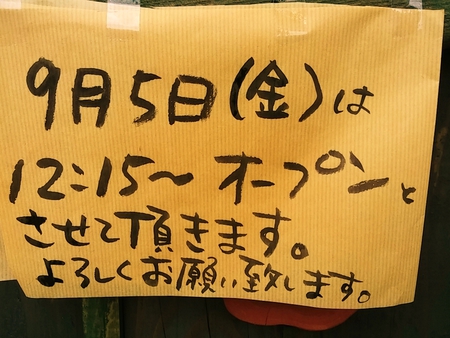 9月5日(金)は
12:15〜 オープンと
させて頂きます。
よろしくお願い致します。